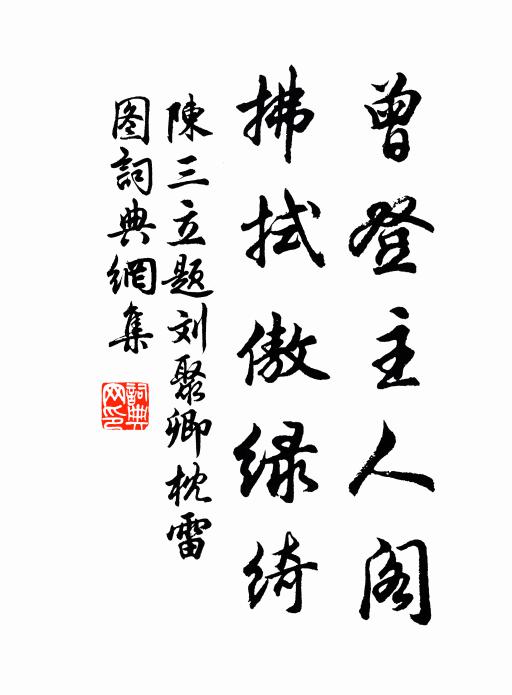 曾登主人阁
拂拭傲绿绮
陳三立题刘聚卿枕雷
图詞典網集
詞典网印